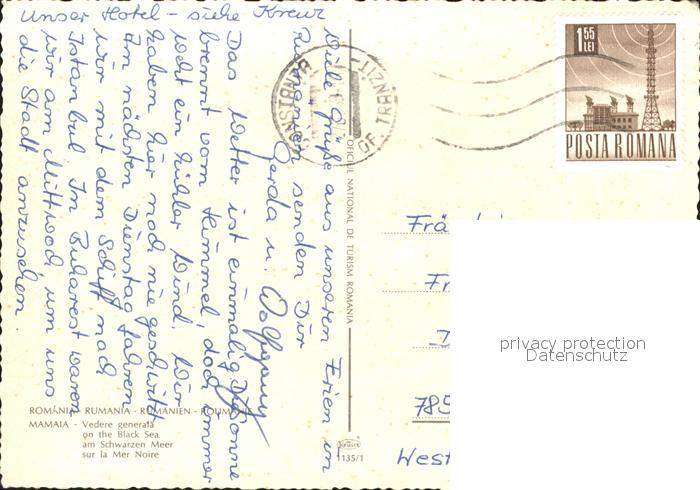 unser Hotel - siehe Kreuz
Viele Grüße aus unseren Ferien in
Rumänien senden Dir
Gerda u. Wolfgang
Das Wetter ist einmalig. Die Sonne
brennt vom Himmel, doch immer
weht ein kühler Wind. Wir
haben hier noch nie geschwitzt
Am nächsten Dienstag fahren
wir mit dem Schiff nach
Istanbul. In Bukarest waren
wir am Mittwoch, um uns
die Stadt anzusehen.
ROMÂNIA - RUMANIA - RUMÄNIEN - ROUMANIE
MAMAIA - Vedere generală
on the Black Sea
am Schwarzen Meer
sur la Mer Noire
OFICIUL NATIONAL DE TURISM ROMANIA
1135/1
CONSTANTA
OF. TRANZIT
1 55
LEI
POSTA ROMANA
Frä
Fr
D
785
West
privacy protection
Datenschutz